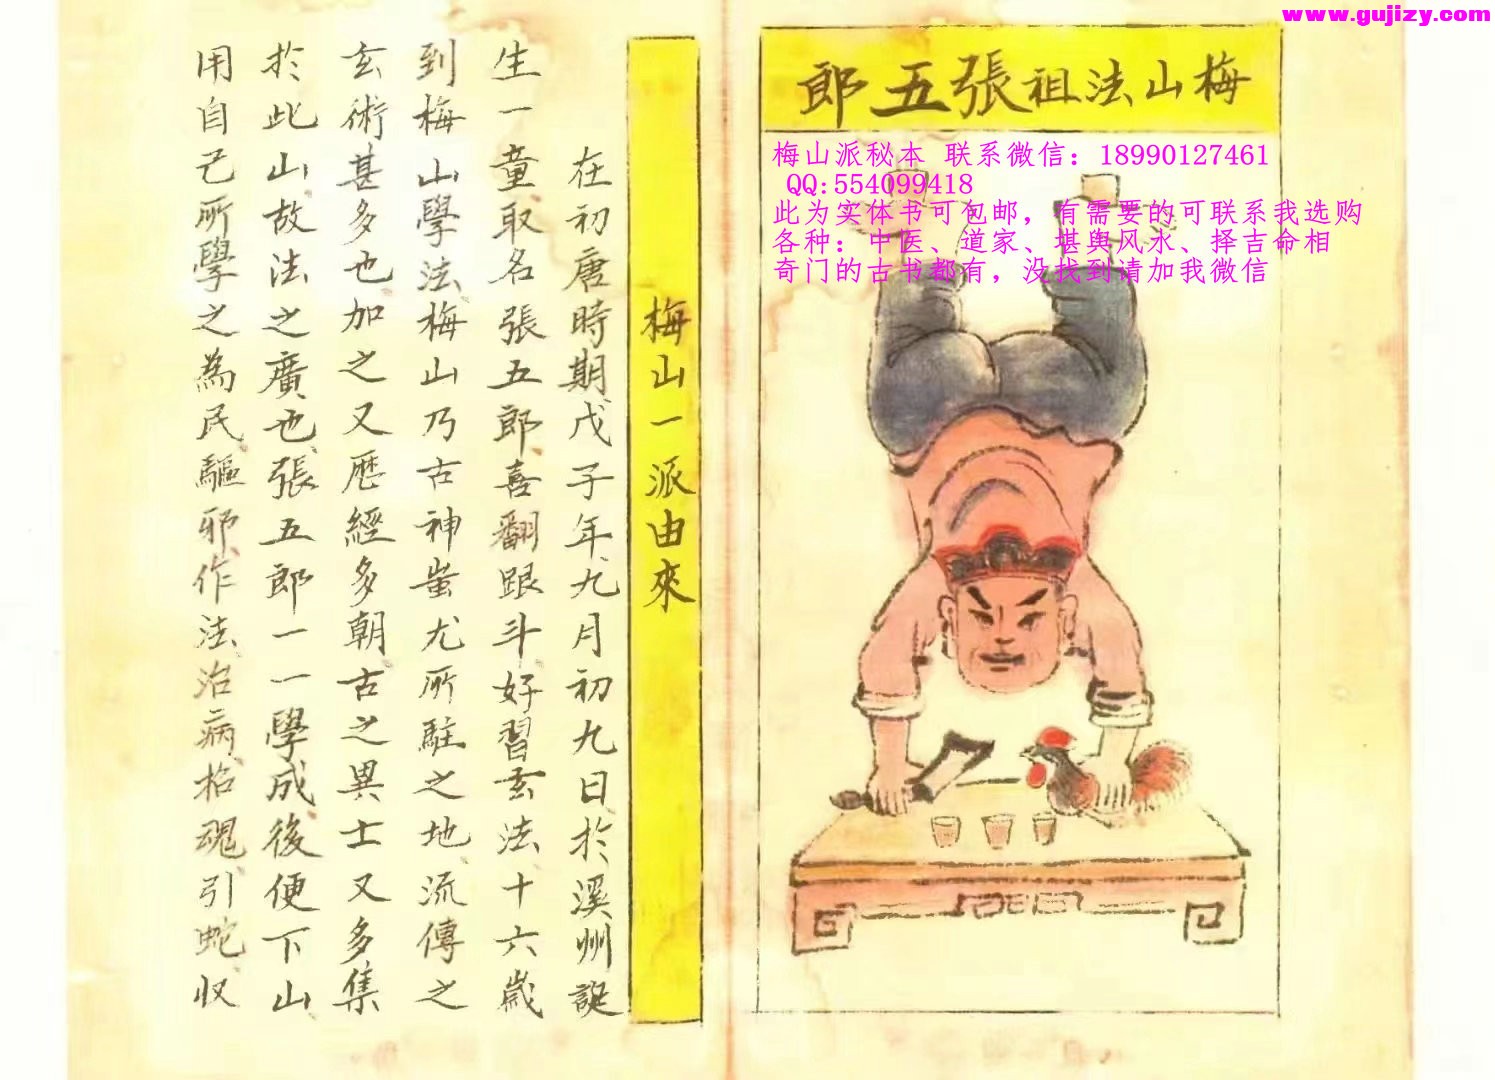 www.gujizy.com
梅山法祖張五郎
梅山派秘本 联系微信：18990127461
QQ:554099418
此为实体书可包邮，有需要的可联系我选购
各种：中医、道家、堪舆风水、择吉命相
奇门的古书都有，没找到请加我微信
梅山一派由來
在初唐時期戊子年九月初九日於溪州誕
生一童取名張五郎喜翻跟斗好習玄法十六歲
到梅山學法梅山乃古神蚩尤所駐之地流傳之
玄術甚多也加之又歷經多朝古之異士又多集
於此山故法之廣也張五郎一一學成後便下山
用自己所學之為民驅邪作法治病拾魂引蛇収